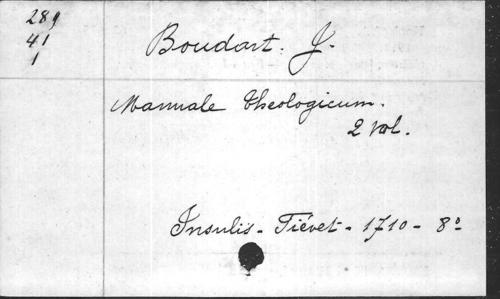 289
41
1
Boudart. J.
Manuale theologicum.
2 vol.
Insulis - Tiévet - 1710 - 8º